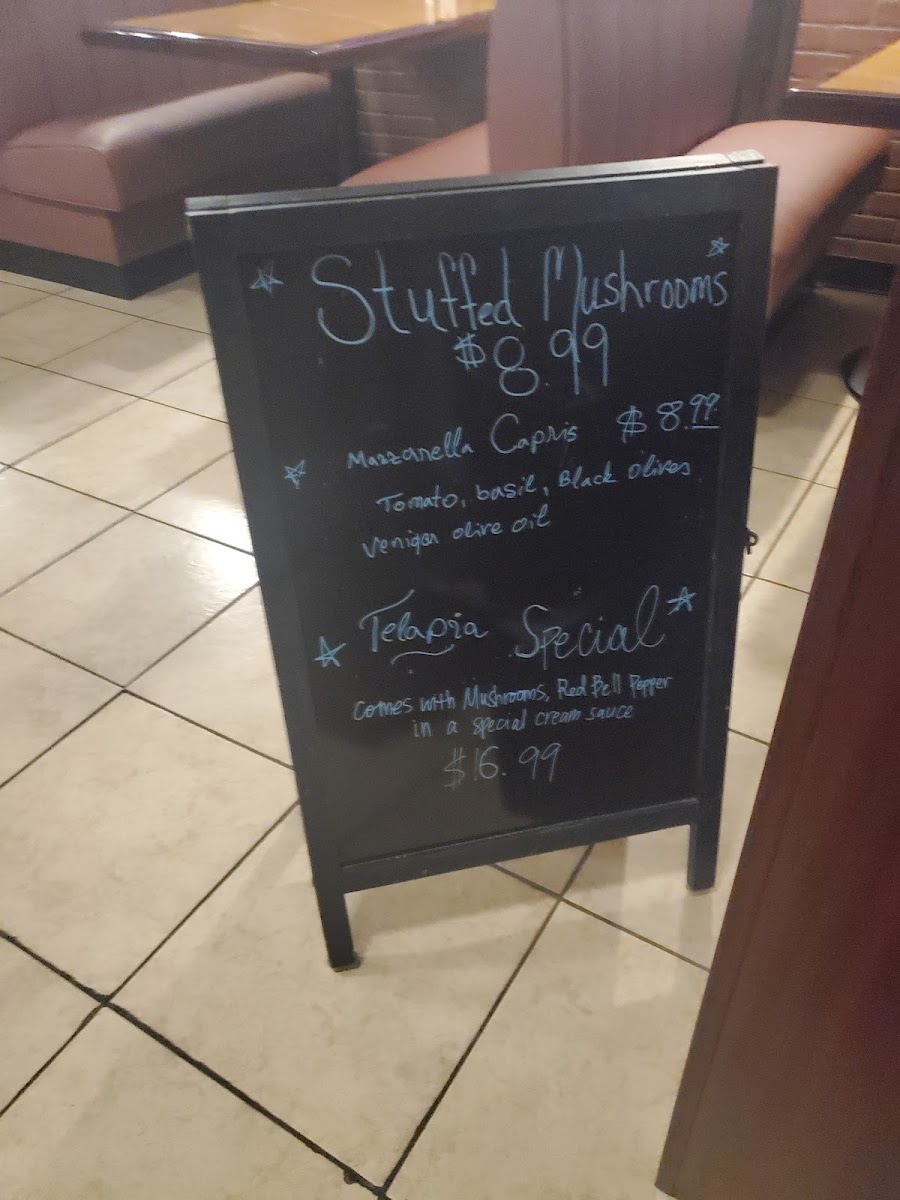 Stuffed Mushrooms
$8.99
Mazzarella Capris $8.99
Tomato, basil, Black olives
Veniger olive oil
Telapia Special
Comes with Mushrooms, Red Bell Pepper
in a special cream sauce
$16.99